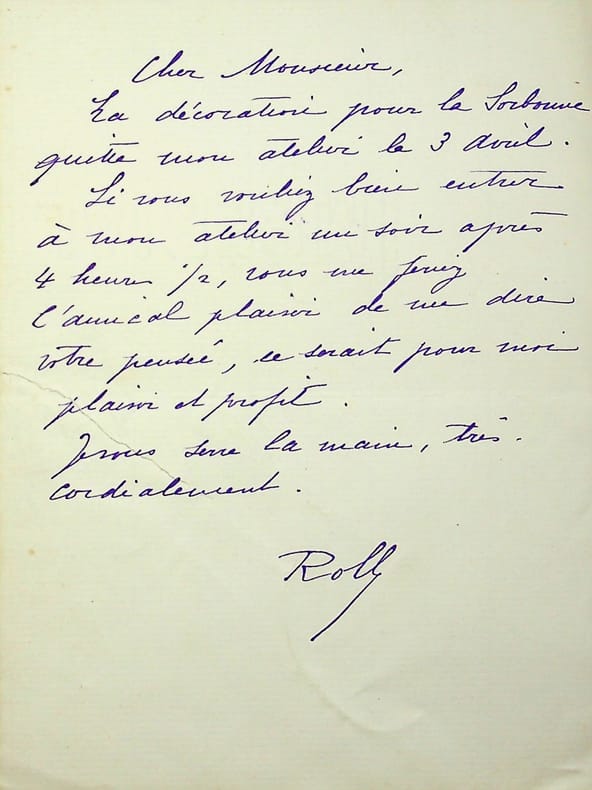 Cher Monsieur,
La décoration pour la Sorbonne
quitte mon atelier le 3 Avril.
Si vous vouliez bien entrer
à mon atelier un soir après
4 heures 1/2, vous me feriez
l'amical plaisir de me dire
votre pensée, ce serait pour moi
plaisir et profit.
Je vous serre la main, très.
cordialement.
Roll